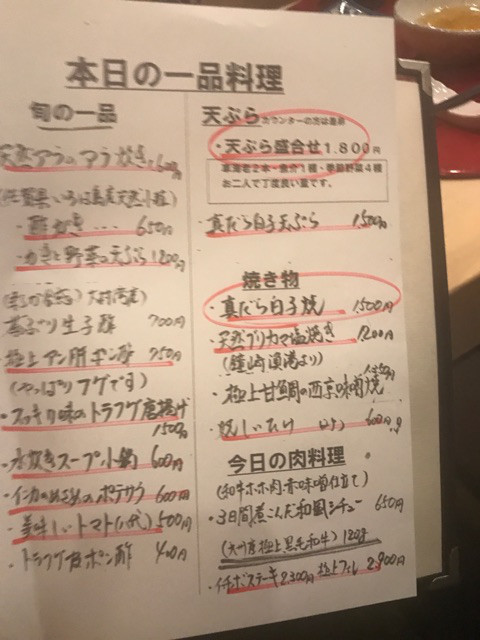 本日の一品料理
旬の一品
天然アラのアラ炊き 1,600円
・酢がき・・・ 650円
・かきと野菜の天ぷら 1200円
生子酢 700円
・極上アン肝ポン酢 750円
(やっぱりフグです)
・スッキリ味のトラフグ唐揚げ
1500円
・水炊きスープ小鍋 600円
・インカのめざめのポテサラ 600円
・美味しいトマト 500円
・トラフグ皮ポン酢 400円
天ぷら カウンターの方は最適
・天ぷら盛合せ 1.800円
車海老2本・魚介1種・季節野菜4種
お二人で丁度良い量です。
・真だら白子天ぷら 1,500円
焼き物
・真だら白子焼 1,500円
・天然ブリカマ塩焼き 1,200円
(鐘崎漁港より)
・極上甘鯛の西京味噌焼
・焼しいたけ 600円
今日の肉料理
(和牛ホホ肉・赤味噌仕立て)
・3日間煮こんだ和風シチュー 650円
(九州産極上黒毛和牛) 120g
・イチボステーキ 2,300円 極上フィレ 2,900円